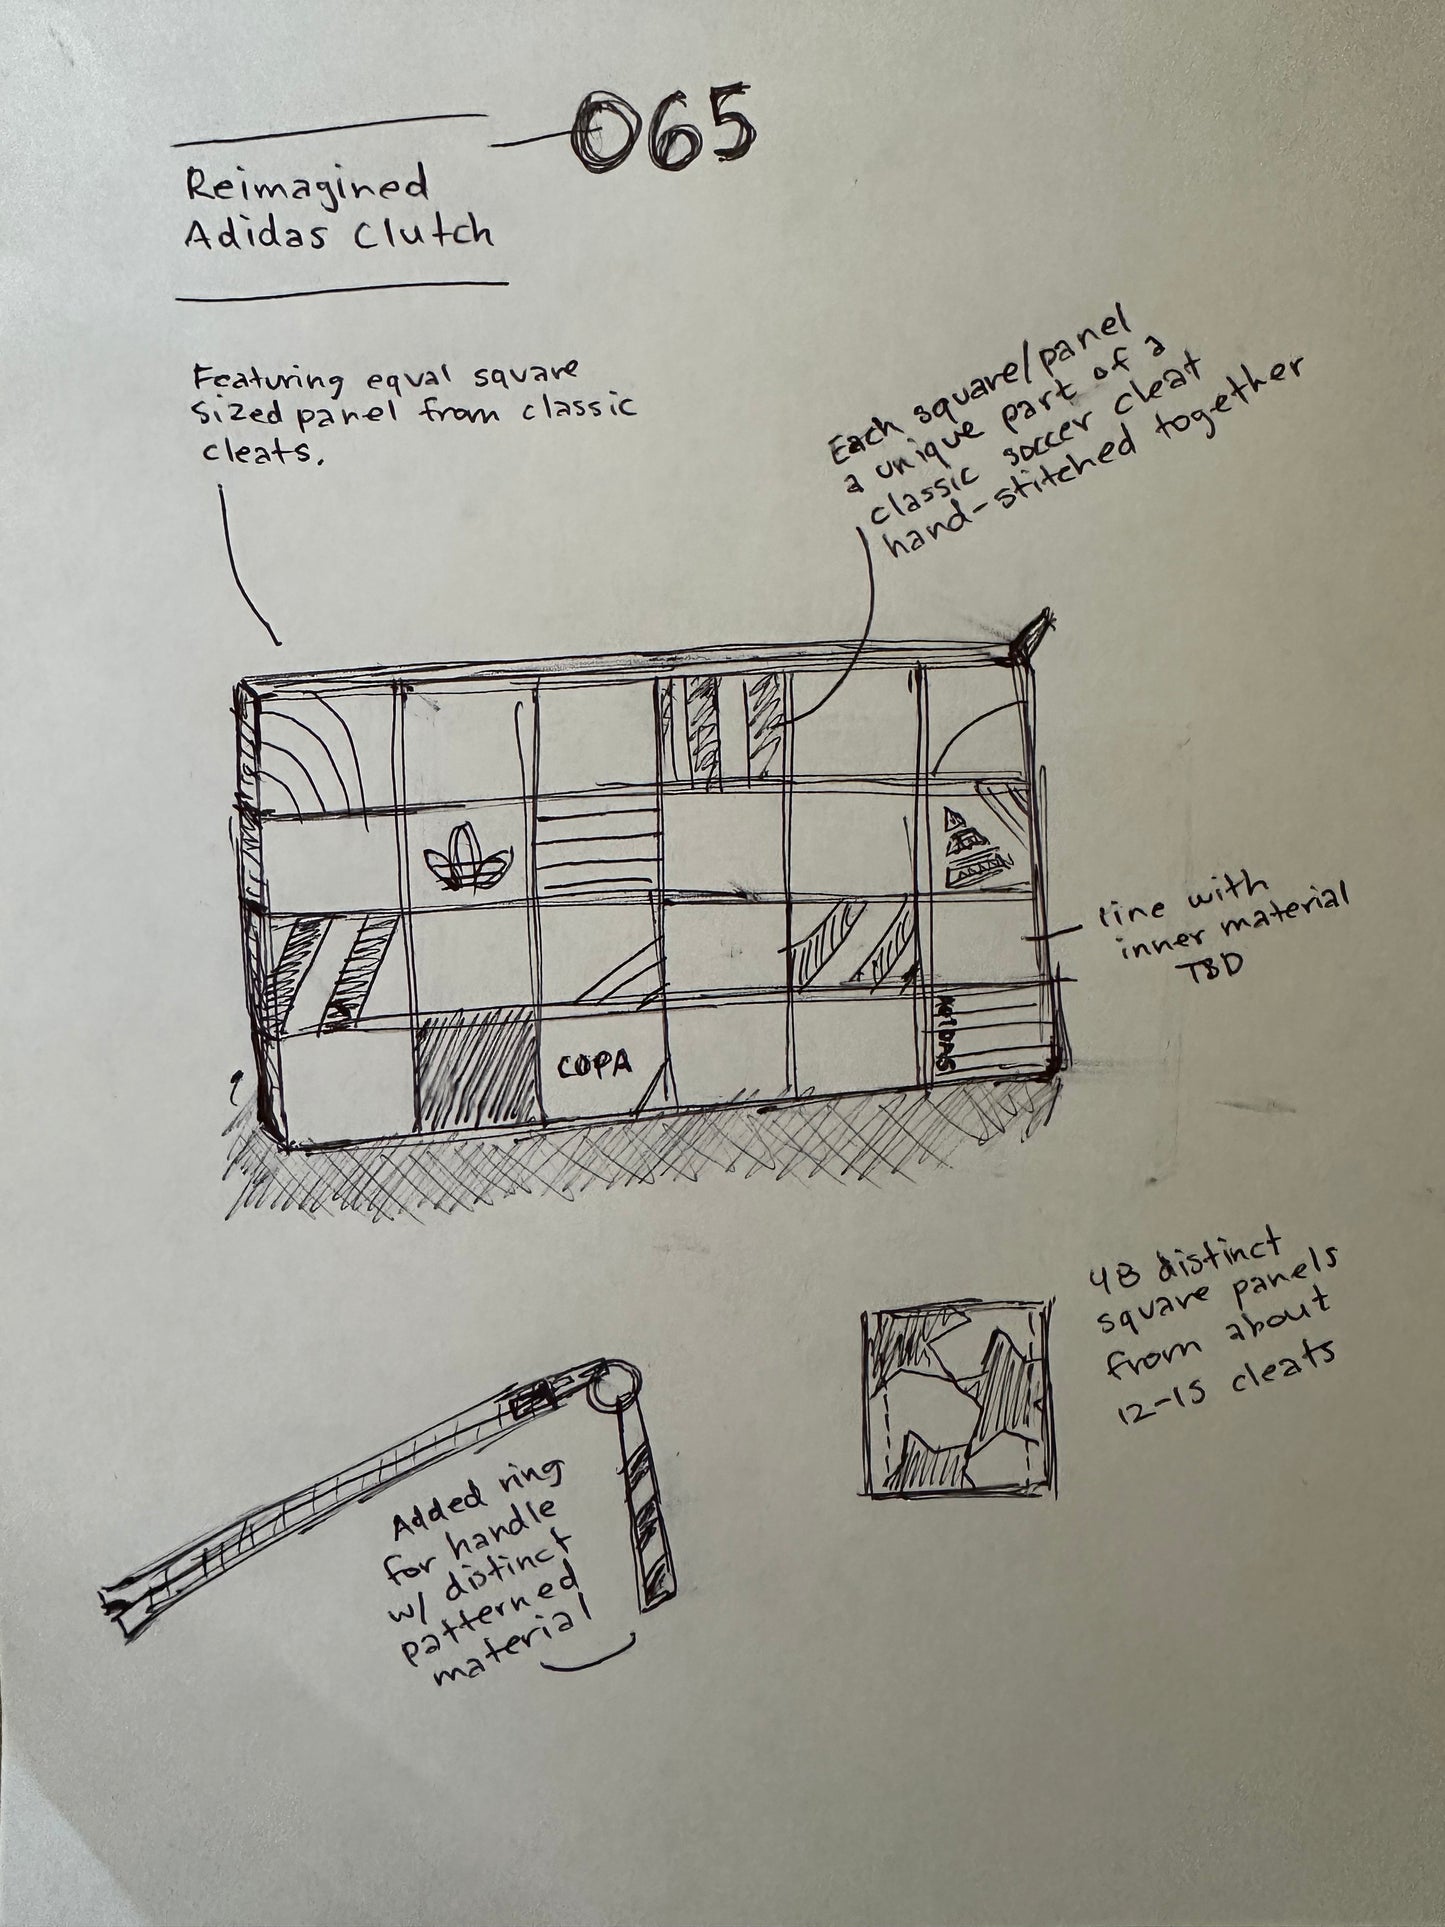 065
Reimagined
Adidas Clutch
Featuring equal square
sized panel from classic
cleats.
Each square/panel
a unique part of a
classic soccer cleat
hand-stitched together
line with
inner material
TBD
COPA
ADIDAS
48 distinct
square panels
from about
12-15 cleats
Added ring
for handle
w/ distinct
patterned
material